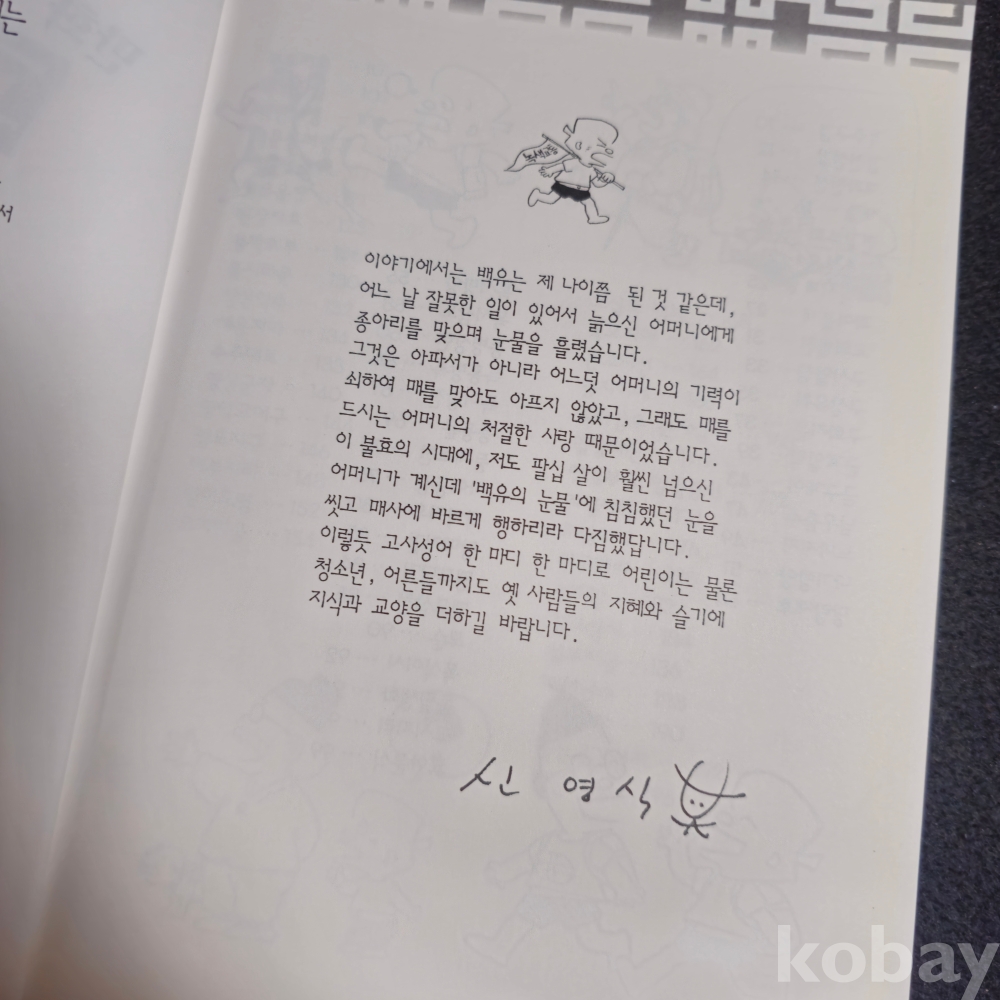 는
서
이야기에서는 백유는 제 나이쯤 된 것 같은데,
어느 날 잘못한 일이 있어서 늙으신 어머니에게
종아리를 맞으며 눈물을 흘렸습니다.
그것은 아파서가 아니라 어느덧 어머니의 기력이
쇠하여 매를 맞아도 아프지 않았고, 그래도 매를
드시는 어머니의 처절한 사랑 때문이었습니다.
이 불효의 시대에, 저도 팔십 살이 훨씬 넘으신
어머니가 계신데 '백유의 눈물'에 침침했던 눈을
씻고 매사에 바르게 행하리라 다짐했답니다.
이렇듯 고사성어 한 마디 한 마디로 어린이는 물론
청소년, 어른들까지도 옛 사람들의 지혜와 슬기에
지식과 교양을 더하길 바랍니다.
신 영 식
kobay